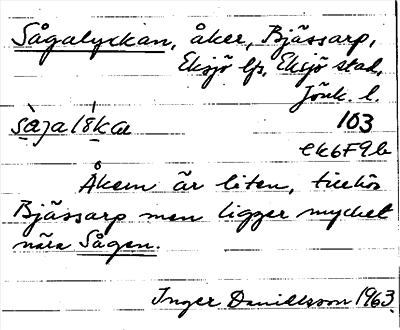 Sågalyckan, åker, Bjässarp,
Eksjö lfs, Eksjö stad,
Jönk. l.
103
ek6F9b
Åkern är liten, tillhör
Bjässarp men ligger mycket
nära Sågen.
Inger Danielsson 1963.